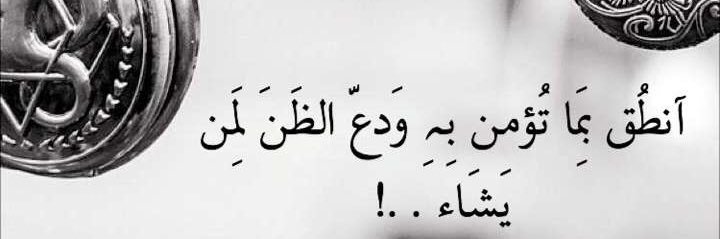 آنطُق بِمَا تُؤمن بِہِ وَدعّ الظَنَ لَِمن
يَشَاء . .!